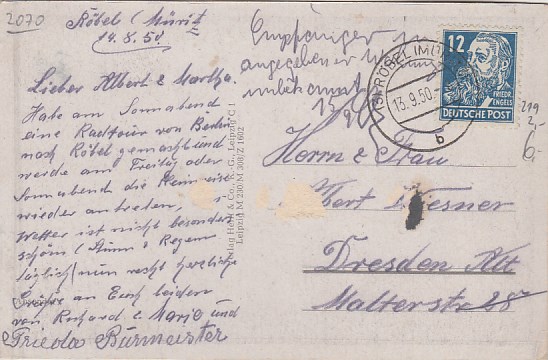 2070
Röbel / Müritz
14.8.50.
Lieber Albert & Martha.
Habe am Sonnabend
eine Radtour von Berlin
nach Röbel gemacht und
werde am Freitag oder
Sonnabend die Heimreise
wieder antreten,
Wetter ist nicht besonders
schön / Sturm & Regen
täglich / nun recht herzliche
Grüße an Euch beiden
von Richard & Marie und
Frieda Burmeister
Empfänger in
angegebener Wohnung
unbekannt
15/9
(13) RÖBEL (MÜR
13.9.50
b
12
FRIEDR. ENGELS
DEUTSCHE POST
219
2,-
6,-
Herrn & Frau
Dresden Alt
Malterstr 28
Verlag Heß & Co., K.-G., Leipzig C 1
Leipzig M 230/M 300/Z 1002